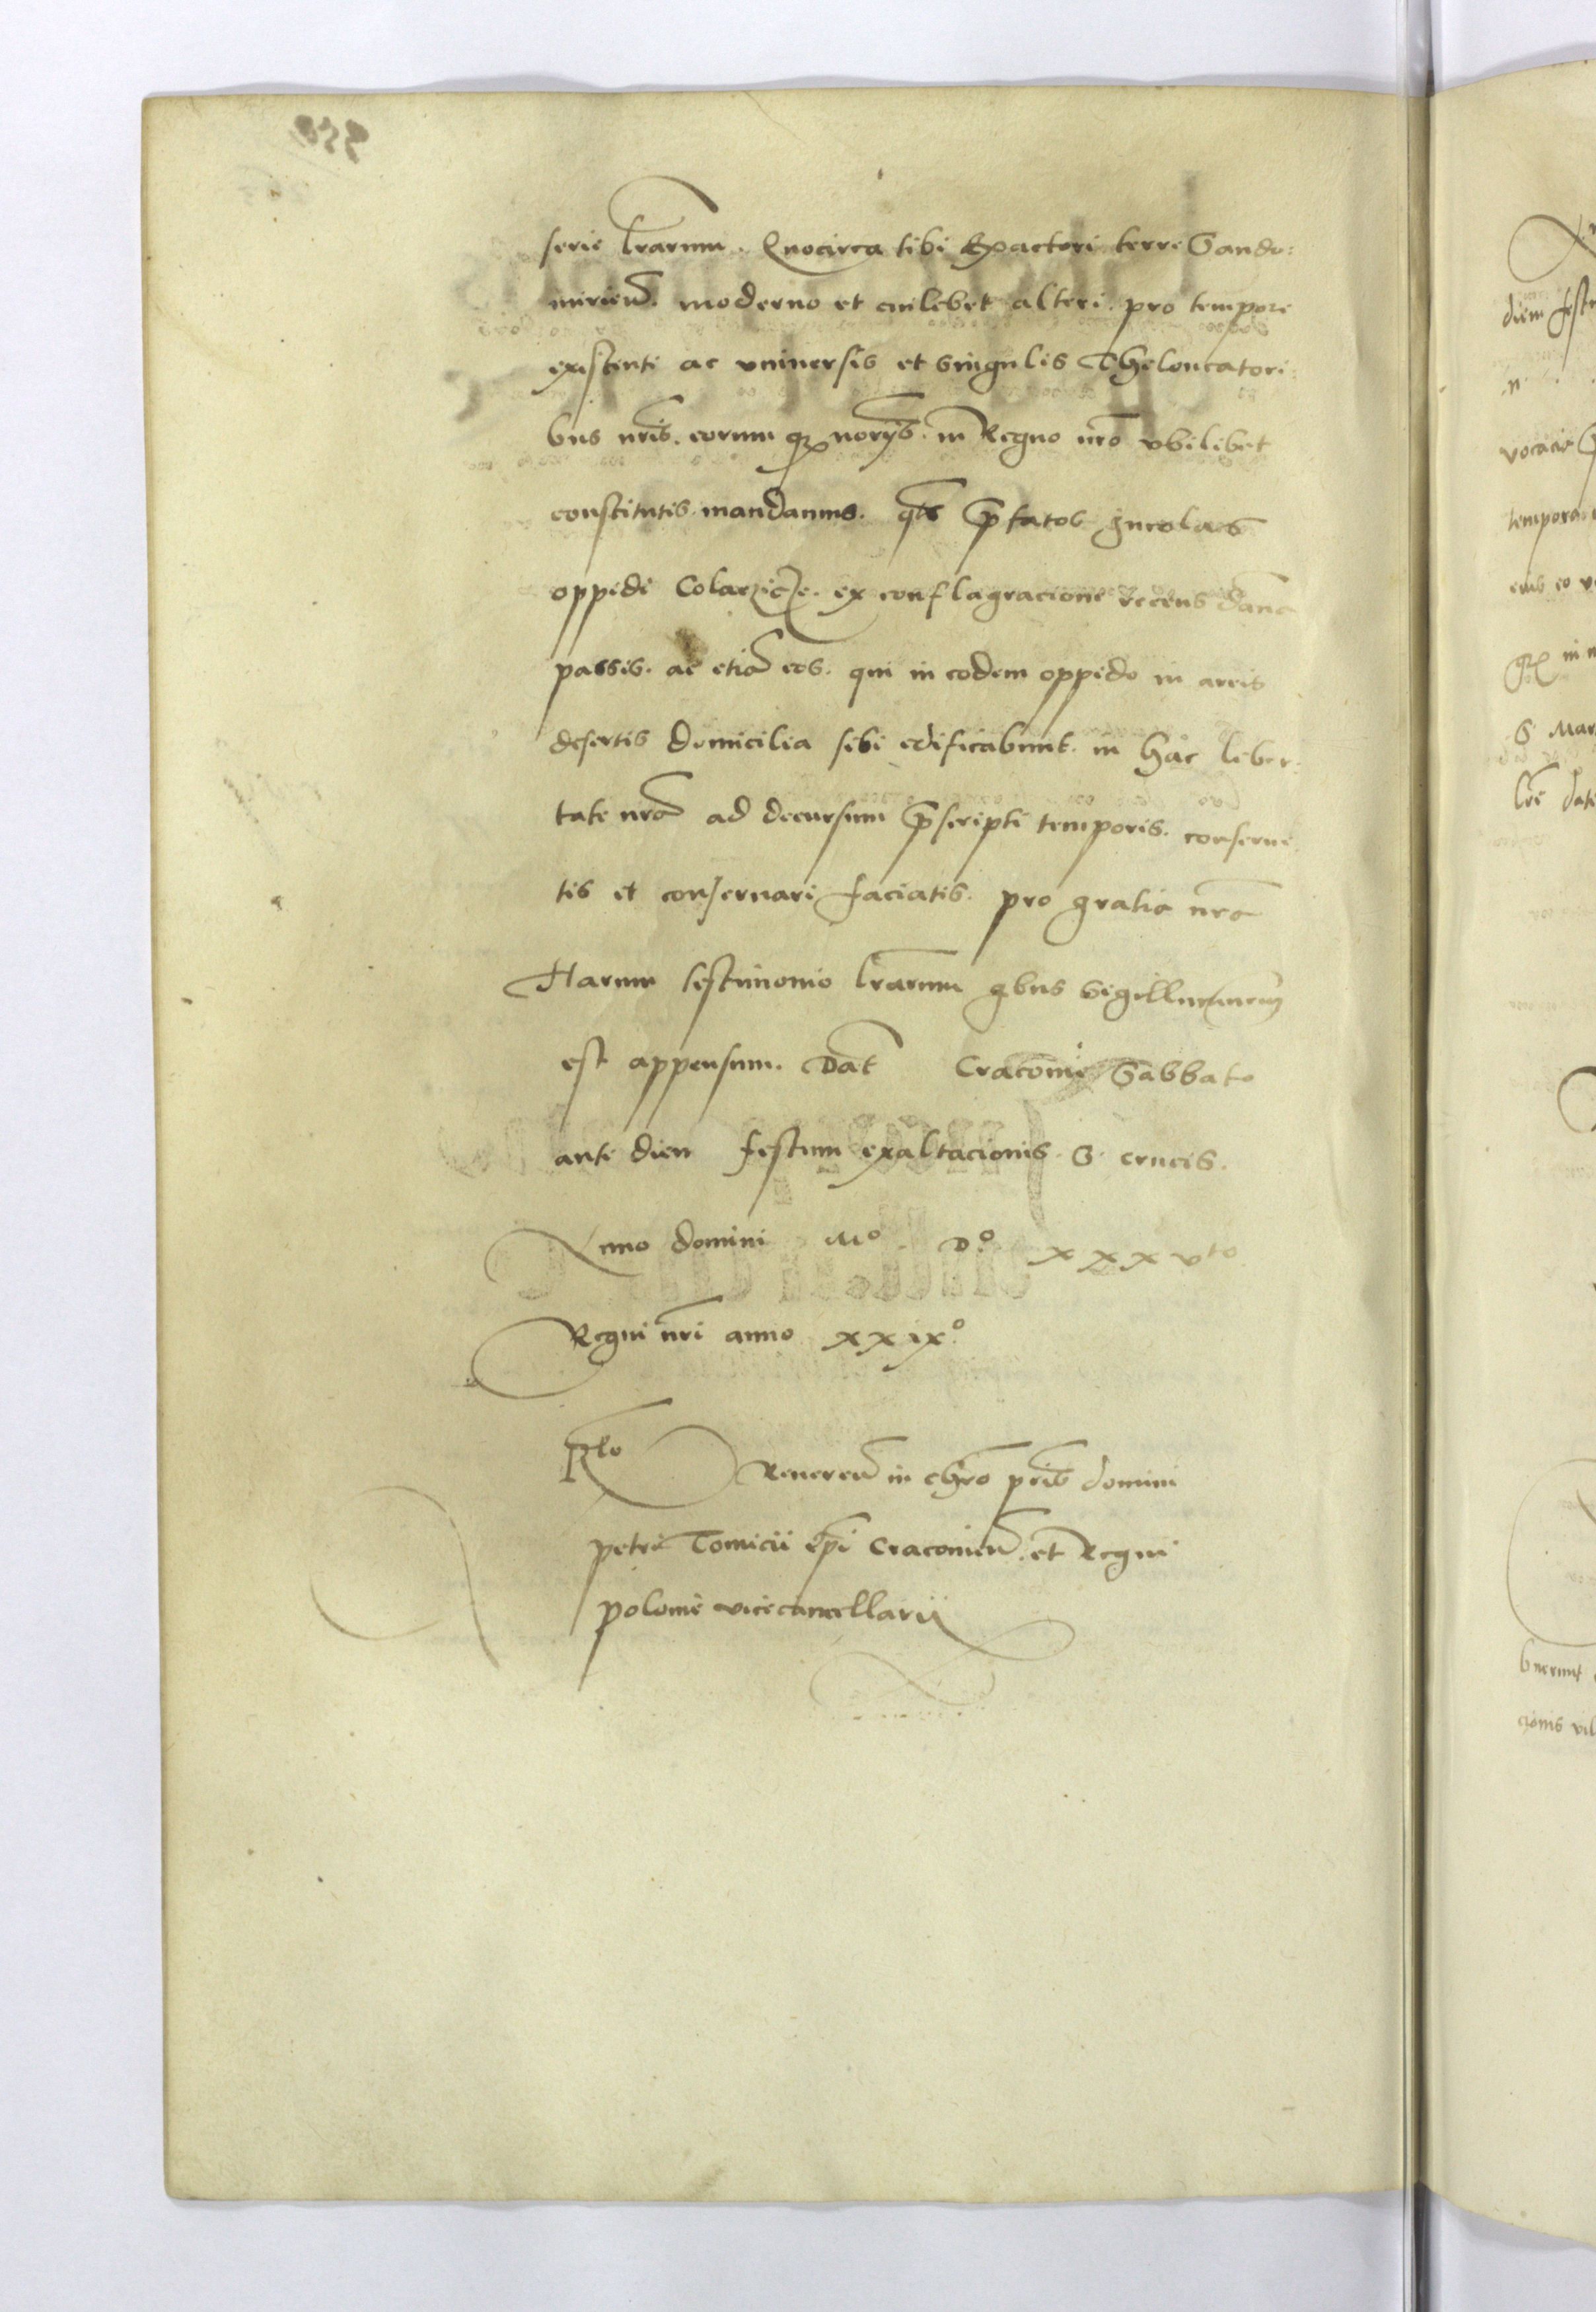 serie lrarum. Quocirca tibi Exactori terre Sando:
mirien. moderno et cuilibet alteri. pro tempore
existenti ac vniuersis et singulis Theloneatori
bus nris. eorum qz norijs. in Regno nro vbilibet
constitutis. mandamus. qts pfatos Incolas
oppidi Colaczicze. ex conflagracione recens dana
passis. ac etia eos. qui in eodem oppido in areis
desertis domicilia sibi edificabunt. in hac liber:
tate nra ad decursum pscripti temporis. conserue
tis et conseruari faciatis. pro gratia nra
Harum testimonio lrarum qbus Sigillum nrm
est appensum. Dat Cracouie Sabbato
ante diem festum exaltacionis. S. crucis.
Anno domini Mo. Do. xxxvto
Regni nri anno xxixo.
Rlo Reueren in chro pris domini
petri Tomicii epi Cracouien. et Regni
polonie vicecancellarii